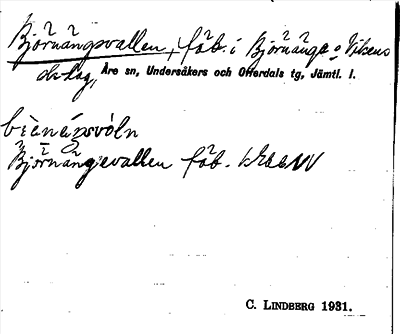 Björnängsvallen, fäb. i Björnänge o. Vikens
skslag, Åre sn, Undersåkers och Offerdals tg, Jämtl. l.
Björnängevallen fäb.
C. LINDBERG 1931.